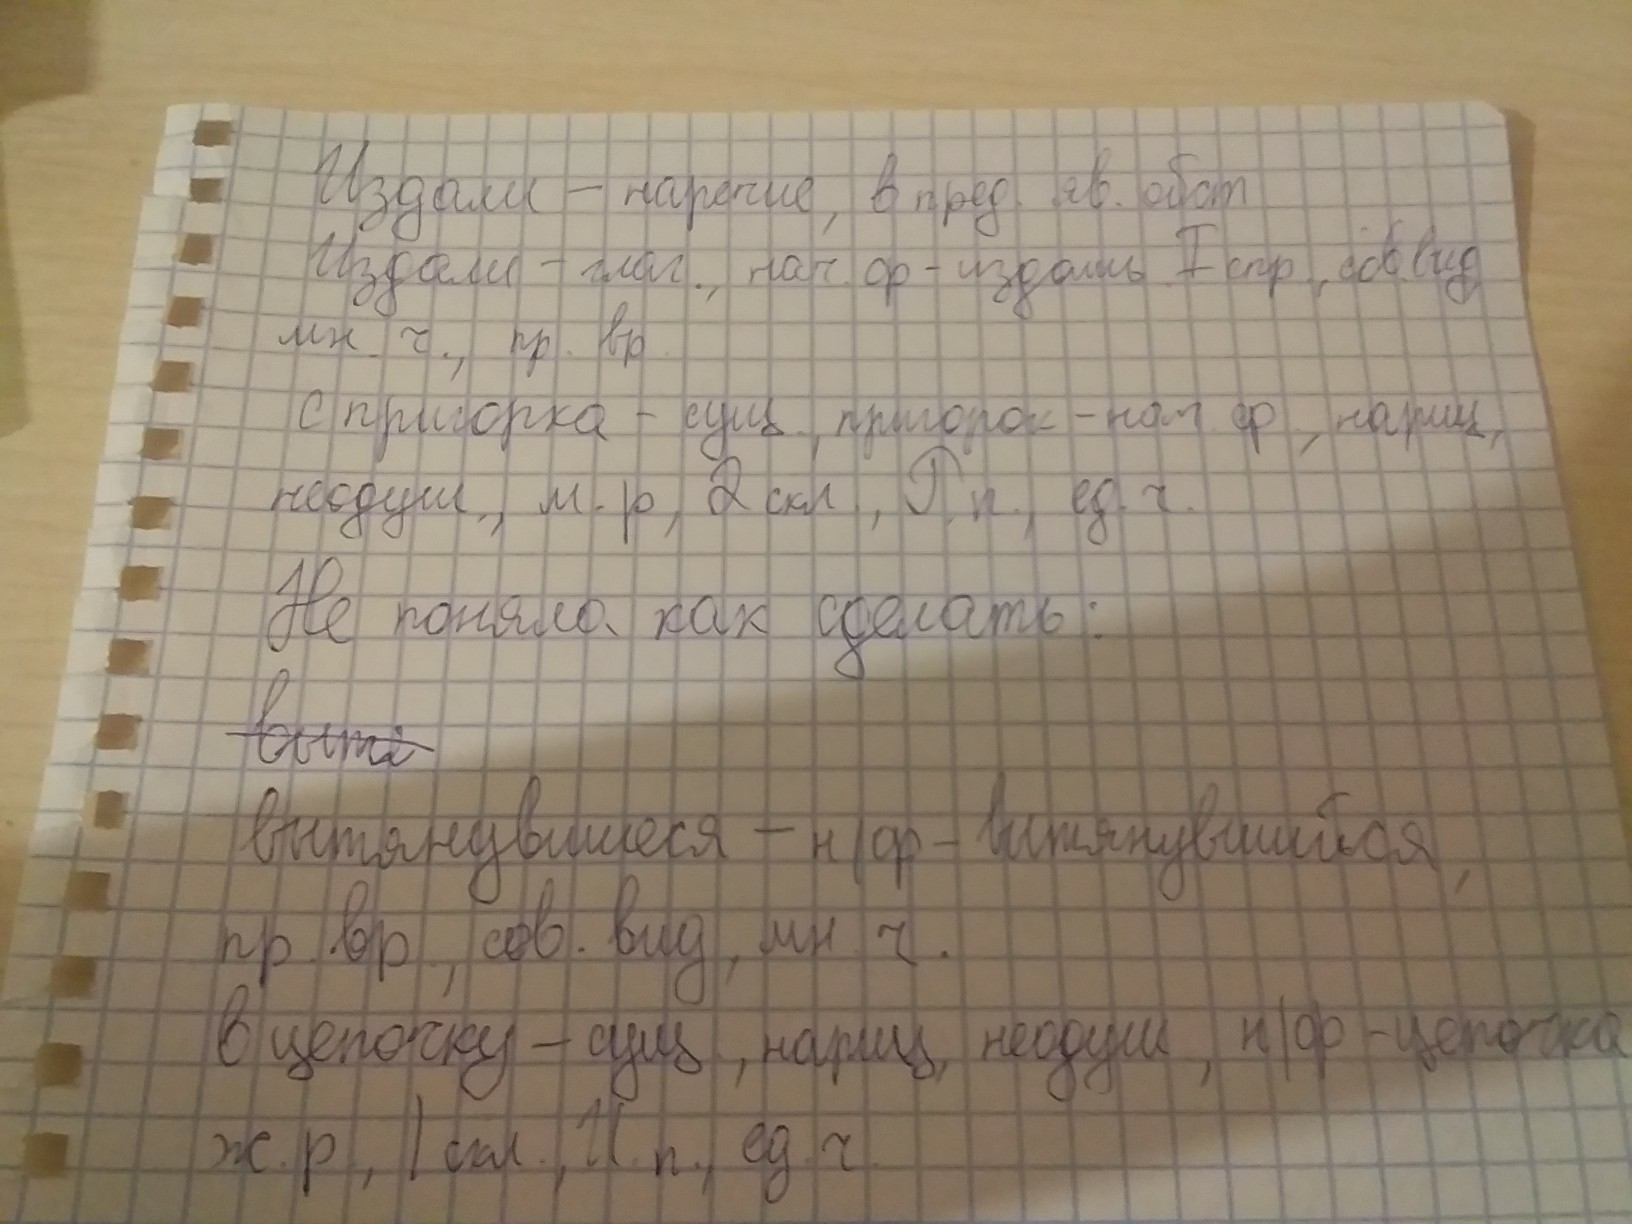 Издали – наречие, в пред. яв. обст
Издали – глаг., нач. ф – издать I спр, сов. вид
мн. ч., пр. вр.
с пригорка – сущ., пригорок – нач. ф., нариц,
неодуш., м. р, 2 скл, Р. п., ед. ч.
Не поняла как сделать:
вытя
вытянувшиеся – н/ф – вытянувшийся,
пр. вр., сов. вид, мн. ч.
в цепочку – сущ, нариц, неодуш, н/ф – цепочка
ж. р, 1 скл., И. п., ед. ч